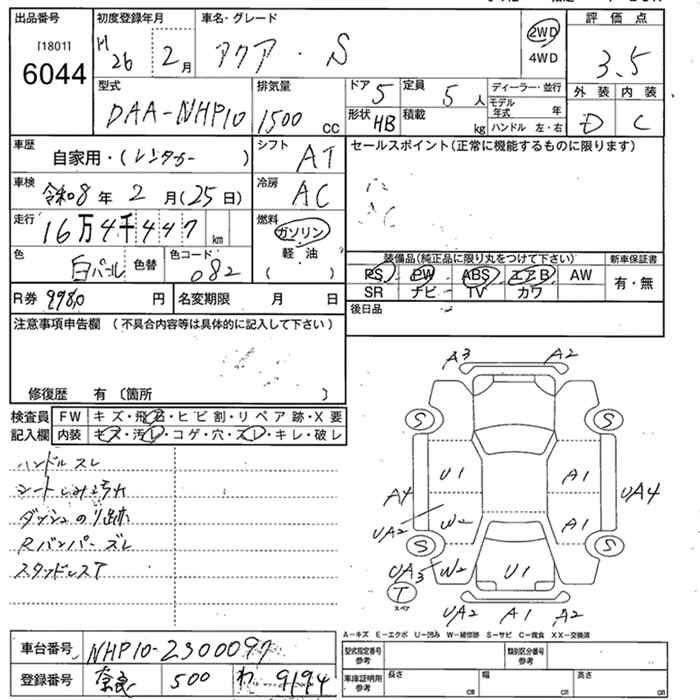 出品番号 [1801] 6044
初度登録年月 H26 2月
車名・グレード アクア・S
2WD 4WD
評価点 3.5
外装 D 内装 C
型式 DAA-NHP10
排気量 1500 cc
ドア 5 形状 HB
定員 5人 積載 kg
ディーラー・並行
モデル年式 年
ハンドル 左・右
車歴 自家用・(レンタカー)
シフト AT
セールスポイント(正常に機能するものに限ります)
車検 令和8年2月(25日)
冷房 AC
走行 16万4千447km
燃料 ガソリン 軽油 ( )
色 白パール 色替 色コード 082
装備品(純正品に限り丸をつけて下さい) 新車保証書
PS PW ABS エアB AW 有・無
SR ナビ TV カワ
R券 9980円 名変期限 月 日
後日品
注意事項申告欄 (不具合内容等は具体的に記入して下さい)
修復歴 有〔箇所 〕
検査員 FW キズ・飛石・ヒビ割・リペア跡・X要
記入欄 内装 キズ・汚レ・コゲ・穴・スレ・キレ・破レ
ハンドルスレ
シートしみ汚れ
ダッシュのり跡
Rバンパーズレ
スタッドレスT
A3 A2
S S
U1 A1
A4 UA4
UA2 W2 A1
S S
UA3 W2 U1
T スペア
UA2 A1 A2
A-キズ E-エクボ U-凹み W-補修跡 S-サビ C-腐食 XX-交換済
車台番号 NHP10-2300097
型式指定番号 参考 類別区分番号 参考
登録番号 奈良 500 わ 9194
車庫証明用 参考 長さ cm 幅 cm 高さ cm